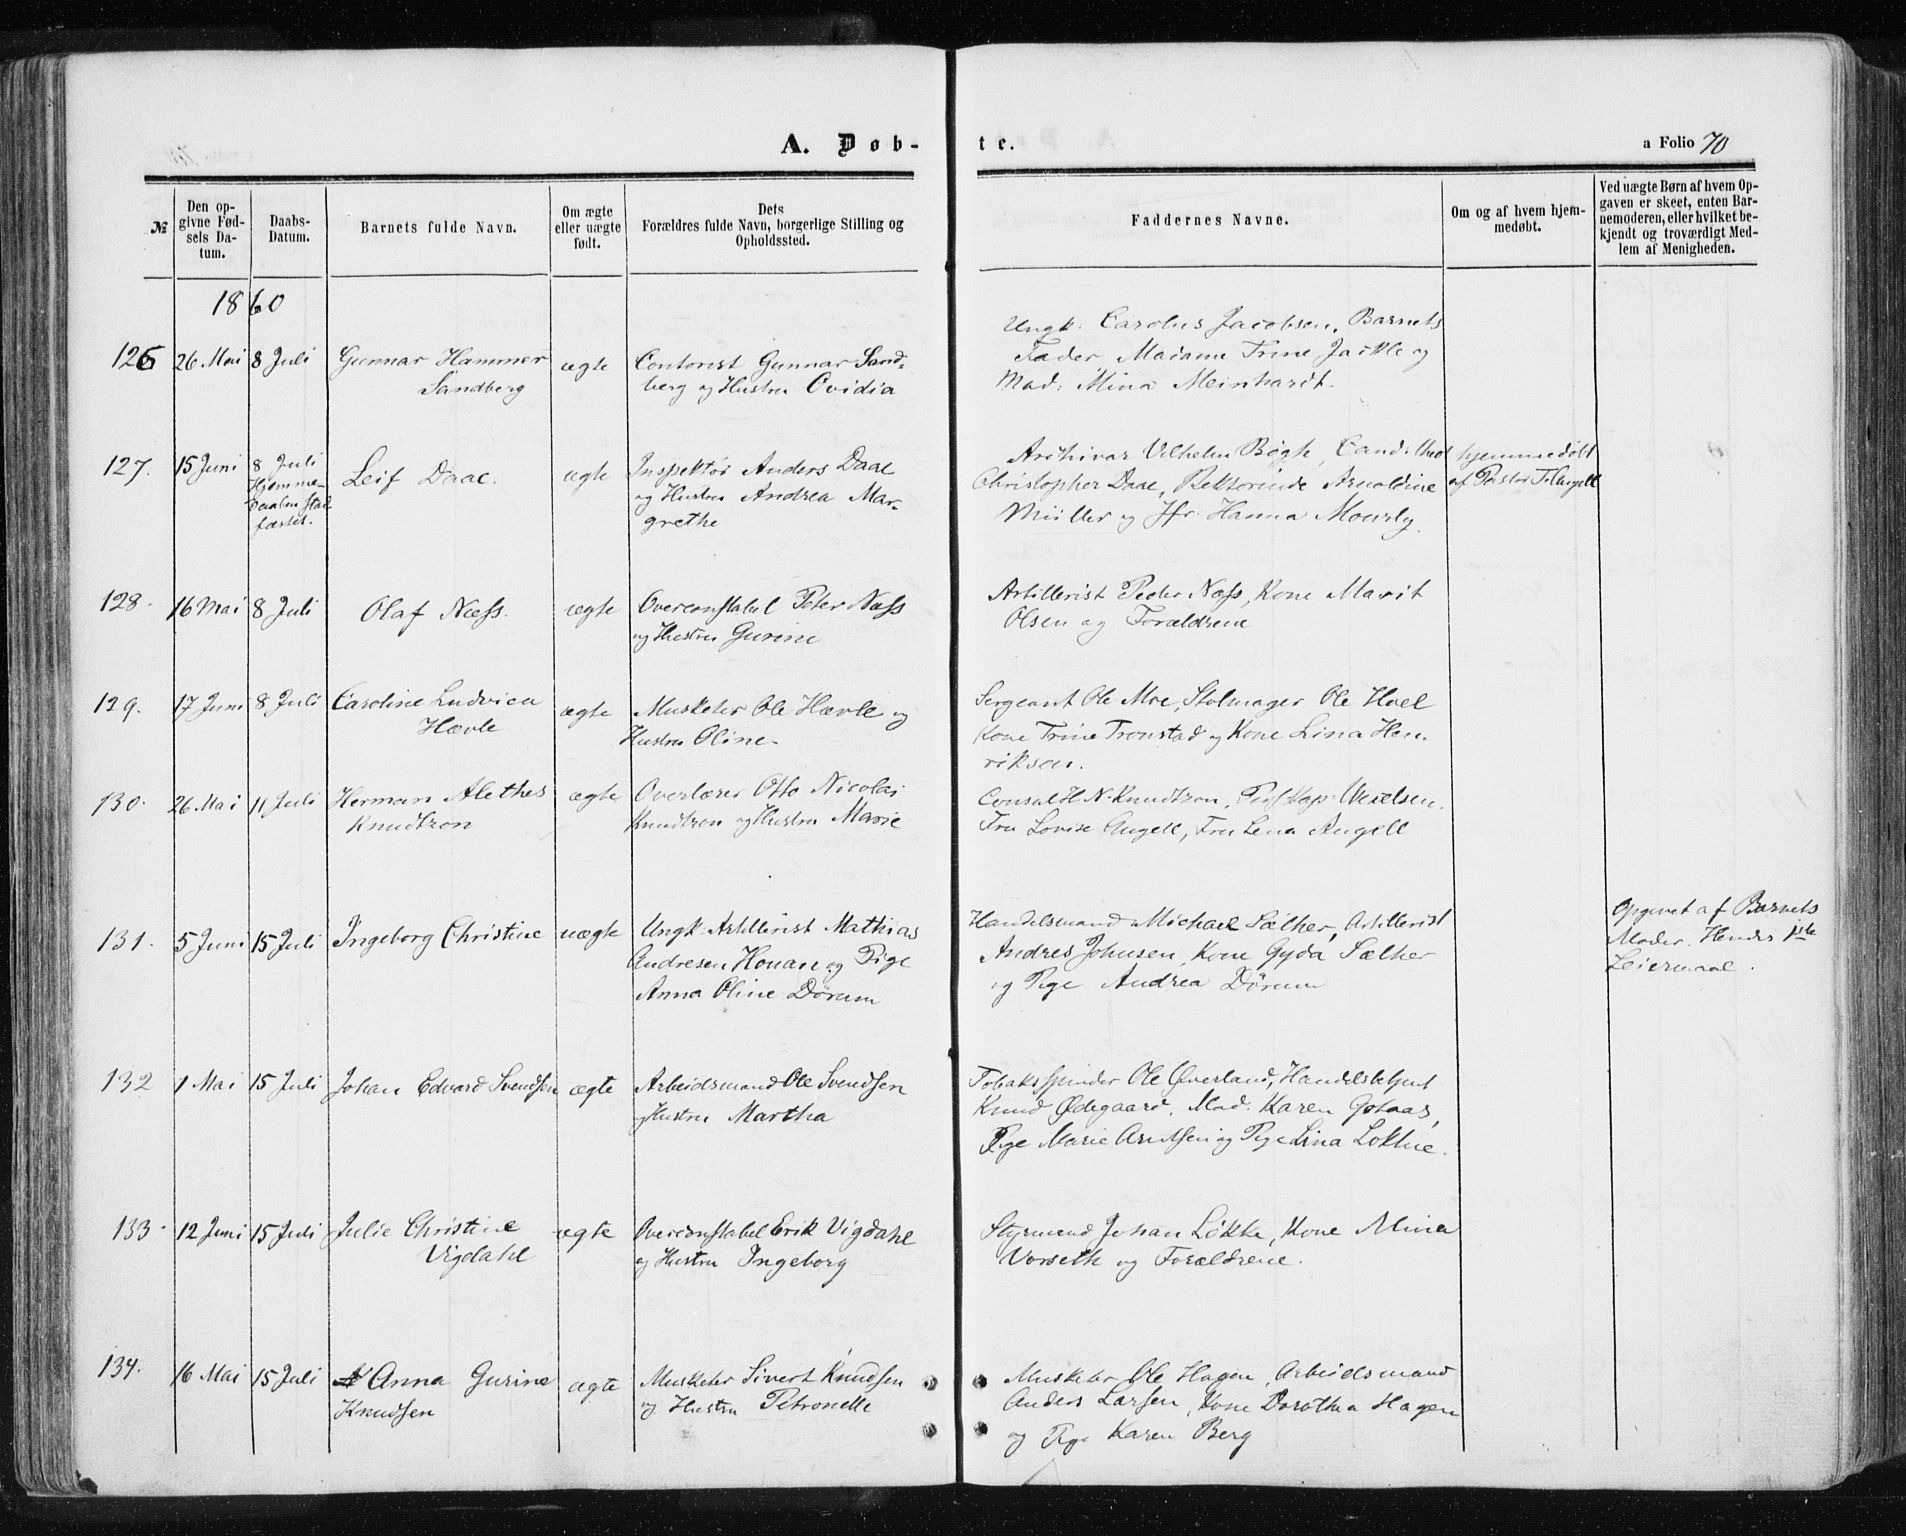 A. Døb-
te.
a Folio 70
№
Den op-
givne Fød-
sels Da-
tum.
Daabs-
Datum.
Barnets fulde Navn.
Om ægte
eller uægte
født.
Dets
Forældres fulde Navn, borgerlige Stilling og
Opholdssted.
Faddernes Navne.
Om og af hvem hjem-
medøbt.
Ved uægte Børn af hvem Op-
gaven er skeet, enten Bar-
nemoderen, eller hvilket be-
kjendt og troværdigt Med-
lem af Menigheden.
1860
126
26 Mai
8 Juli
Gunnar Hammer
Sandberg
ægte
Contorist Gunnar Sand-
berg og Hustru Ovidia
Ungk: Carolus Jacobsen, Barnets
Fader, Madame Trine og
Mad: Mina Meinhardt.
127.
15 Juni
8 Juli
Hjemme-
Daaben stad-
fæstet.
Leif Daae.
ægte
Inspektør Anders Daae
og Hustru Andrea Mar-
grethe
Arkivar Vilhelm Bøgh, Cand. theol
Christopher Daae, Rektorinde Arnoldine
Müller og Jfr. Hanna
hjemmedøbt
af Pastor
128.
16 Mai
8 Juli
Olaf Næss.
ægte
Overconstabel Peter Næss
og Hustru Gurine
Artillerist Peder Næss, Kone Marit
Olsen og Forældrene
129.
17 Juni
8 Juli
Caroline Ludvica
Hævle
ægte
Musketer Ole Hævle og
Hustru Oline.
Sergeant Ole Moe, Stolmager Ole Hoel
Kone Trine Tronstad og Kone Lina Hen-
riksen.
130.
26 Mai
11 Juli
Herman Alethes
Knudtzon
ægte
Overlærer Otto Nicolai
Knudtzon og Hustru Marie
Consul H. N. Knudtzon,
Fru Lovise Angell, Fru Lena Angell
131.
5 Juni
15 Juli
Ingeborg Christine
uægte
Ungk. Artillerist Mathias
Andresen Houan og Pige
Anna Oline Dørum
Handelsmand Michael Sæther, Artillerist
Andres Johnsen, Kone Gyda Sæther
og Pige Andrea Dørum
Opgivet af Barnets
Moder. Hendes 1ste
Leiermaal.
132
1 Mai
15 Juli
Johan Edvard Svendsen
ægte
Arbeidsmand Ole Svendsen
og Hustru Martha
Tobaksspinder Ole Øverland, Handelsbetjent
Knud Ødegaard, Mad. Karen
Pige Marie Arntsen og Pige Lina Løkhie.
133.
12 Juni
15 Juli
Julie Christine
Vigdahl
ægte
Overconstabel Erik Vigdahl
og Hustru Ingeborg
Styrmand Johan Løkke, Kone Mina
Vorseth og Forældrene.
134.
16 Mai
15 Juli
Anna Gurine
Knudsen
ægte
Musketer Sivert Knudsen
og Hustru Petronelle
Musketer Ole Hagen, Arbeidsmand
Anders Larsen, Kone Dorothea Hagen
og Pige Karen Berg